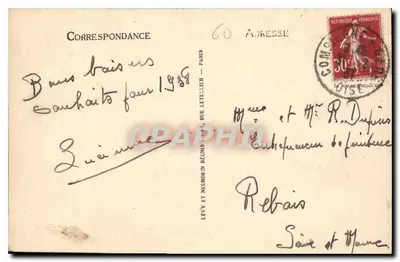 CORRESPONDANCE
60
ADRESSE
RÉPUBLIQUE FRANÇAISE
30c
OISE
Bons baisers
Souhaits pour 1938
Lucienne
LÉVY ET NEURDEIN RÉUNIS, RUE LETELLIER - PARIS
Mme et Mr R. Dupuis
Entrepreneur de peinture
Rebais
Seine et Marne
CPARAMA